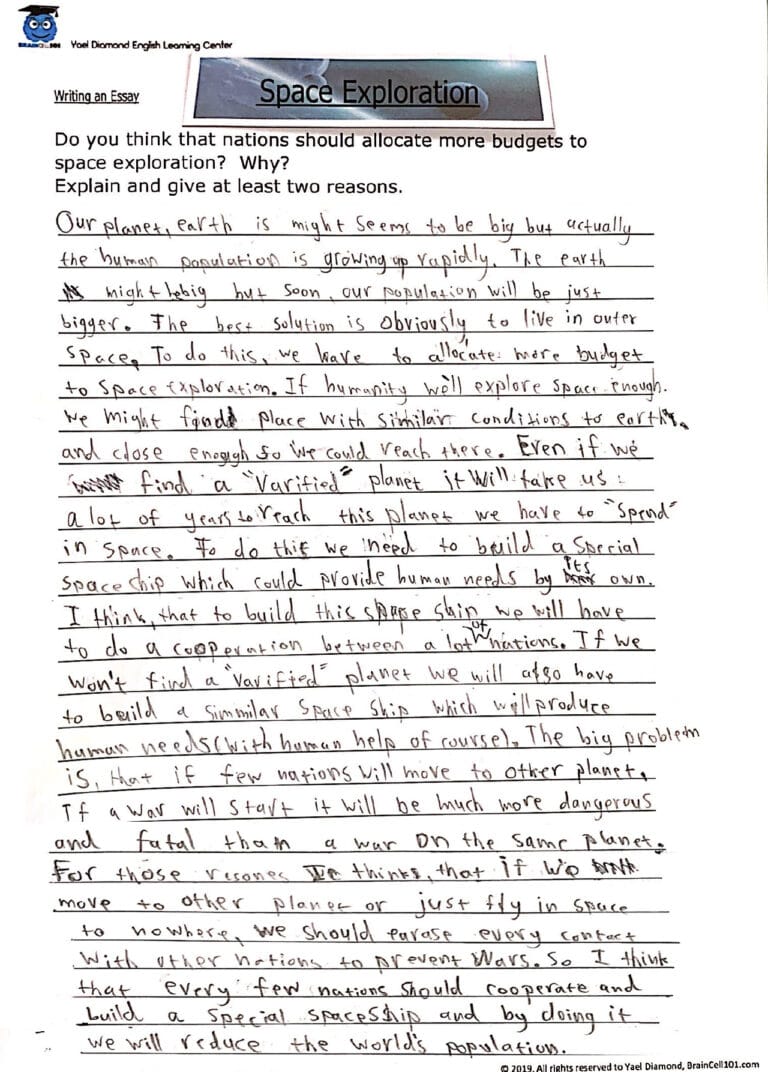 BRAINCELL101 Yael Diamond English Learning Center
Writing an Essay
Space Exploration
Do you think that nations should allocate more budgets to
space exploration? Why?
Explain and give at least two reasons.
Our planet, earth is might seems to be big but actually
the human population is growing up rapidly. The earth
might be big but soon, our population will be just
bigger. The best solution is obviously to live in outer
space. To do this, we have to allocate more budget
to space exploration. If humanity will explore space enough.
we might find place with similar conditions to earth's,
and close enough so we could reach there. Even if we
find a "varified" planet it will take us
a lot of years to reach this planet we have to "spend"
in space. To do this we need to build a special
space ship which could provide human needs by its own.
I think, that to build this space ship we will have
to do a cooperation between a lot of nations. If we
won't find a "varified" planet we will also have
to build a simmilar space ship which will produce
human needs (with human help of course). The big problem
is, that if few nations will move to other planet,
If a war will start it will be much more dangerous
and fatal than a war on the same planet.
For those resones I thinks, that if we
move to other planet or just fly in space
to nowhere, we should earase every contact
with other nations to prevent wars. So I think
that every few nations should cooperate and
build a special spaceship and by doing it
we will reduce the world's population.
© 2019. All rights reserved to Yael Diamond, BrainCell101.com